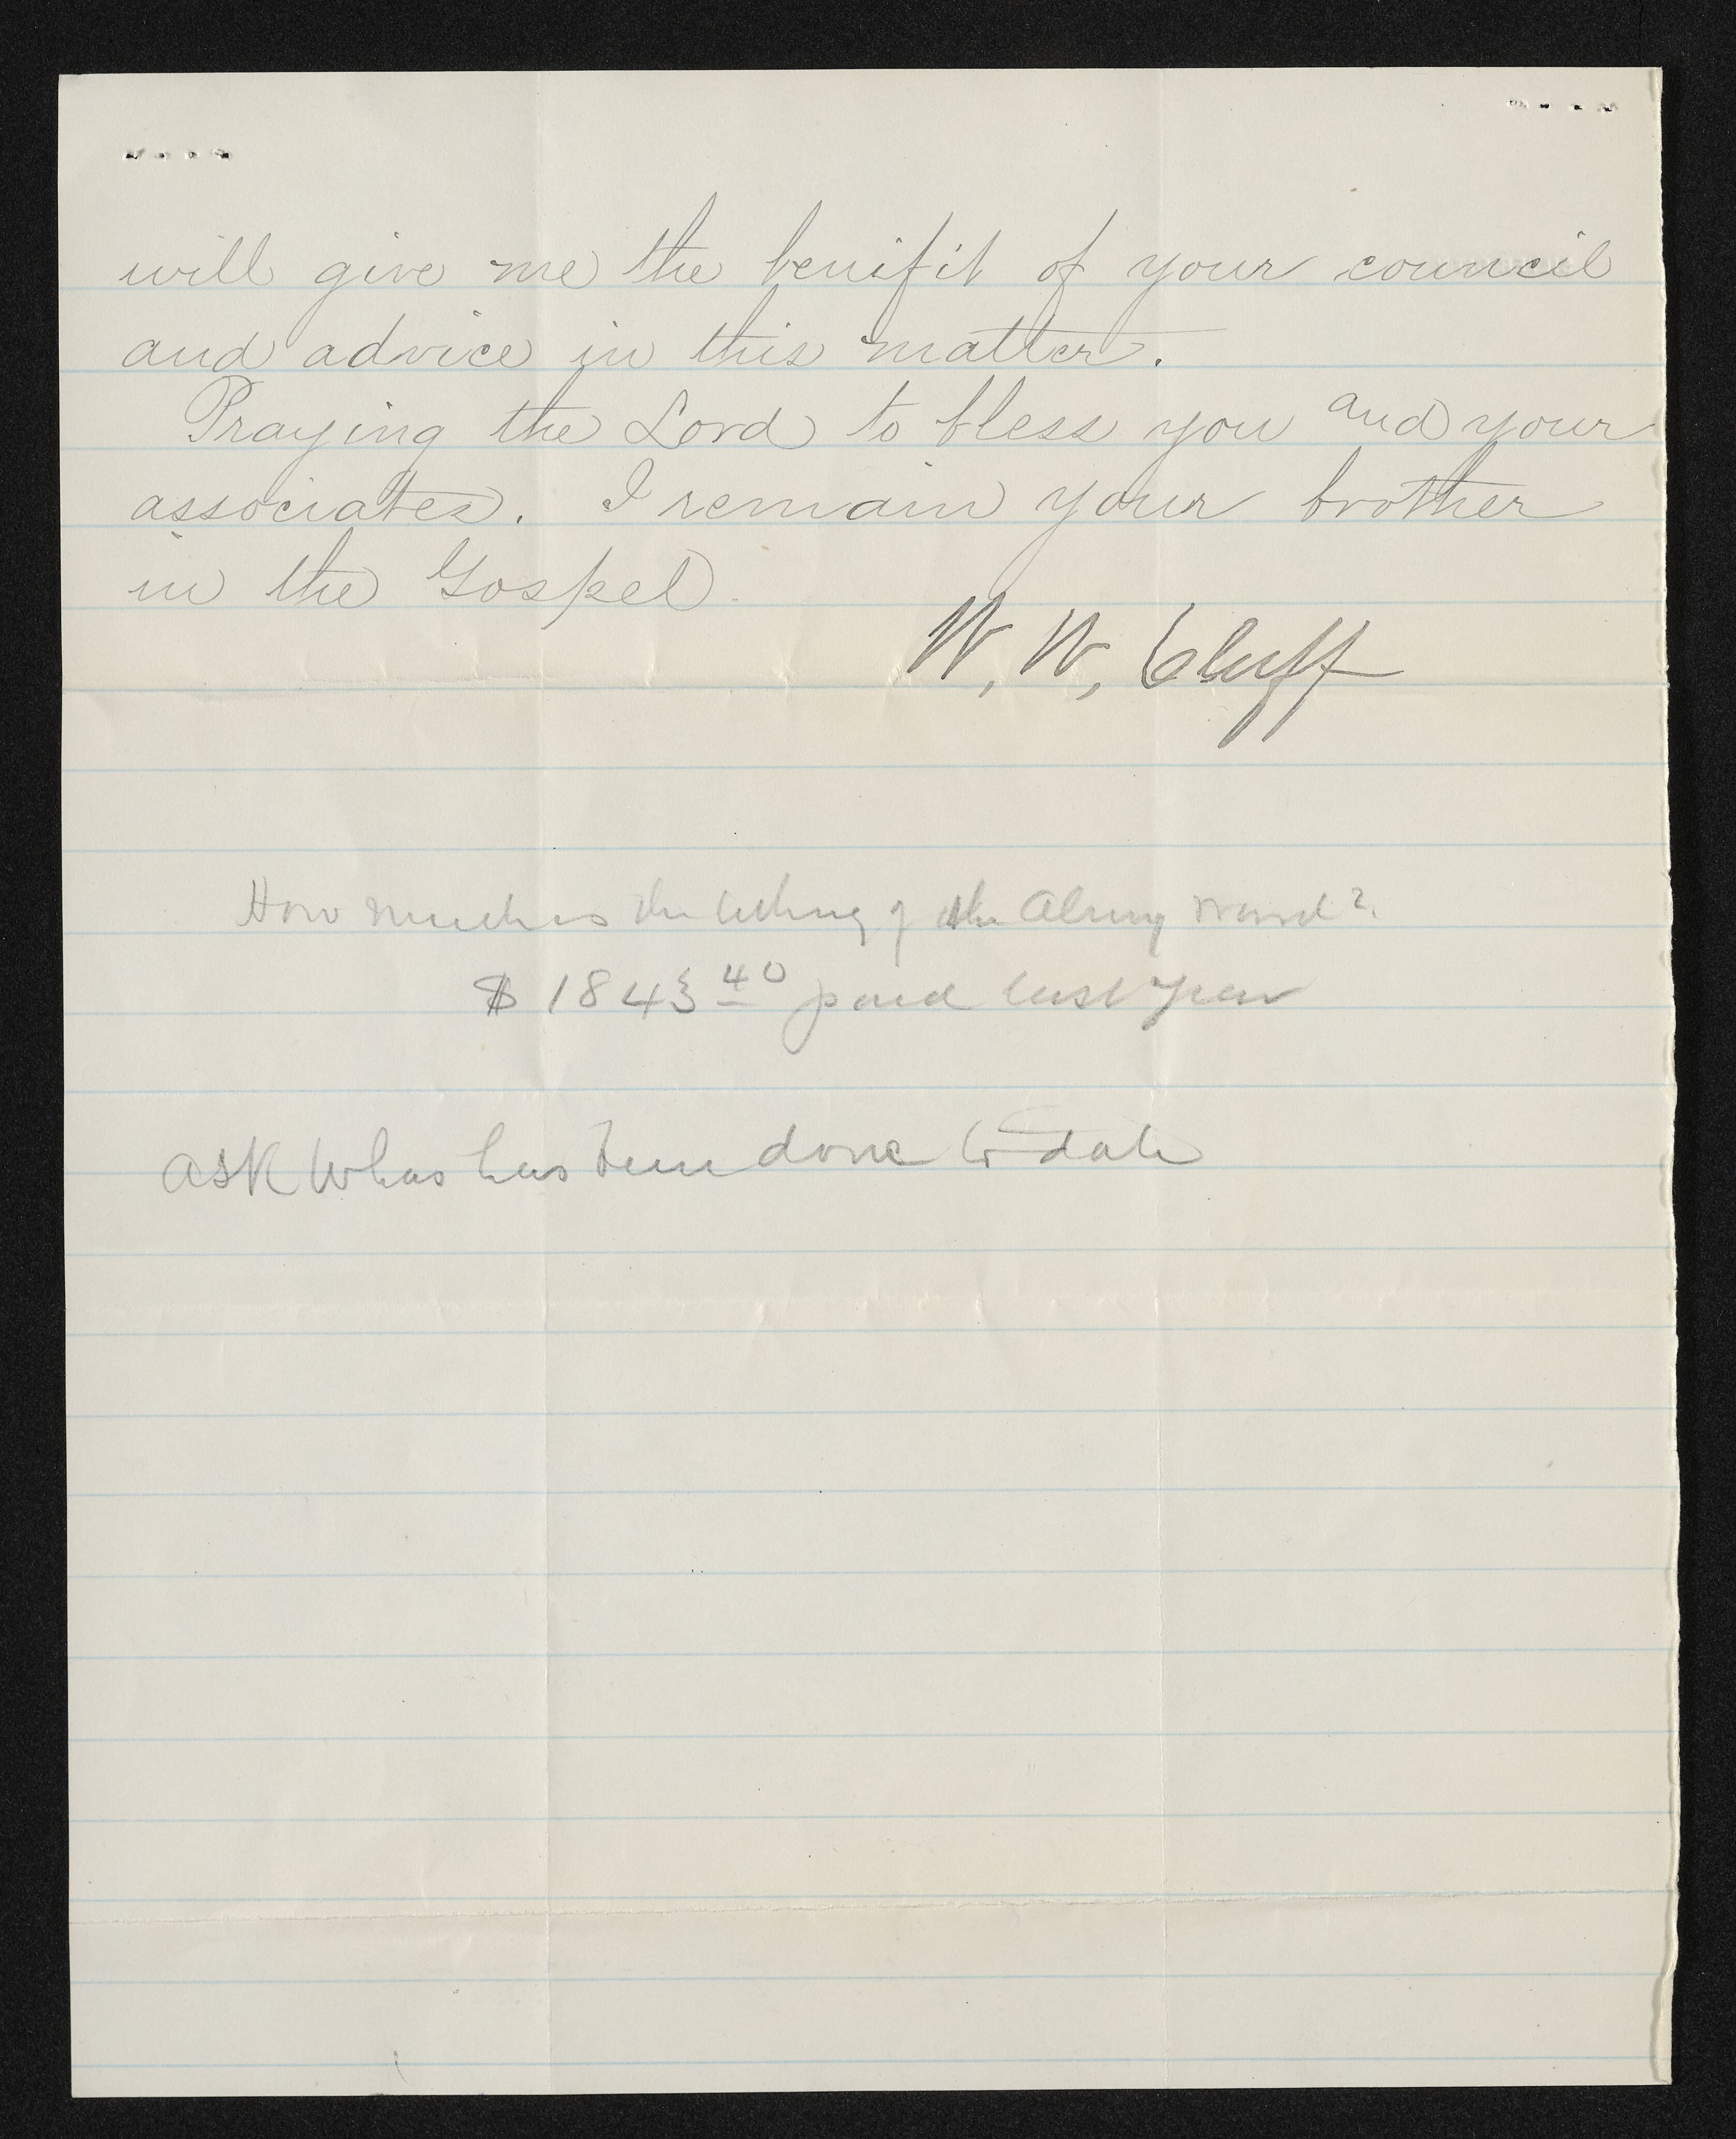 will give me the benifit of your council
and advice in this matter.
Praying the Lord to bless you and your
associates. I remain your brother
in the Gospel.
W. W. Cluff
How much is the tithing of the Almy Ward?
$1843 40 paid last year
ask what has been done to date